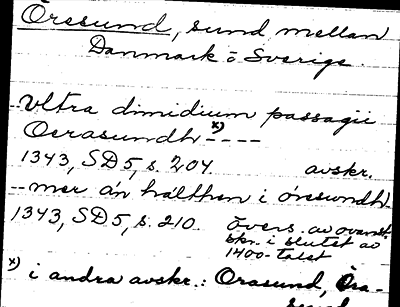 Öresund, sund mellan
Danmark o Sverige.
--Vltra dimidium passagii
Oerasundh x)----
1343, SD 5, s. 204. avskr.
--mer än hälfthen i öresundh
1343, SD 5, s. 210. övers. av ovanst.
bkn. i slutet av
1400-talet
x) i andra avskr.: Orasund, Öra-